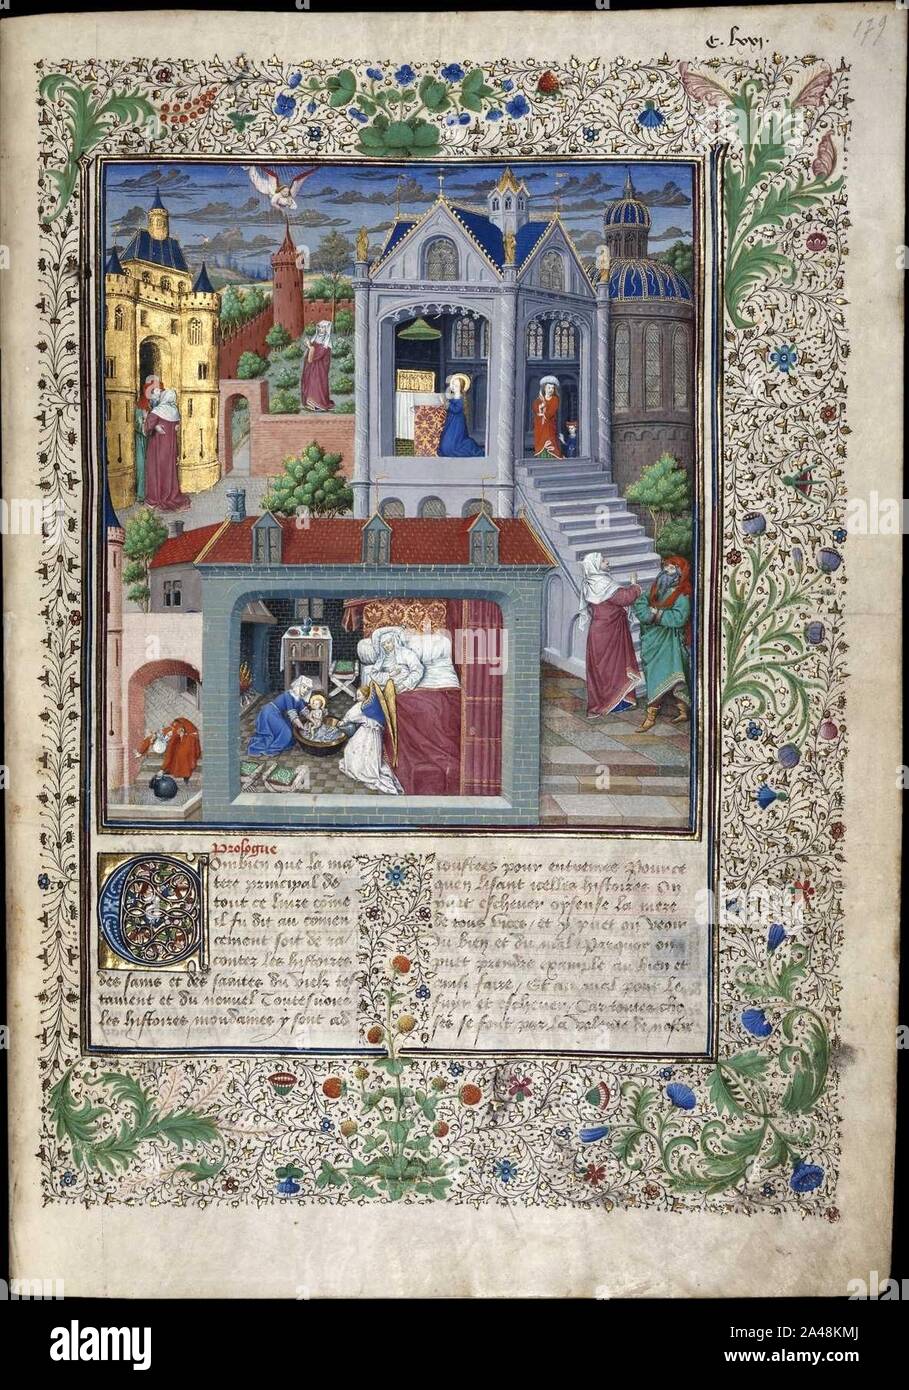 C. lxxi.
179
Prologue
Combien que la ma
tere principal de
tout ce livre come
il fu dit au comen
cement soit de ra
contez les histoires
des sains et des saintes du vielz tes
tament et du nouvel Toutesvoies
les histoires mondaines y sont ad
joustees pour entremes Pour ce
quen lisant icelles histoires On
puet eschever opseuse la mere
de tous vices / et y puet on veoir
du bien et du mal / Parquoy on
puet prendre exemple au bien et
ainsi faire / Et au mal pour le
fuir et eschever / Car toutes cho
ses se font par la
alamy
Image ID: 2A48KMJ
www.alamy.com